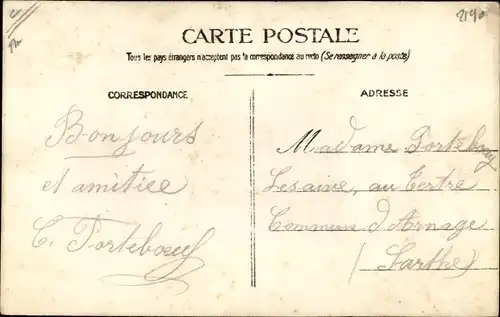 2190
CARTE POSTALE
Tous les pays étrangers n'acceptent pas la correspondance au recto (Se renseigner à la poste)
CORRESPONDANCE
Bonjours
et amitiée
C. Portebœuf
ADRESSE
Madame Portebœuf
Lesaive, au Tertre
Commune d'Arnage
(Sarthe)